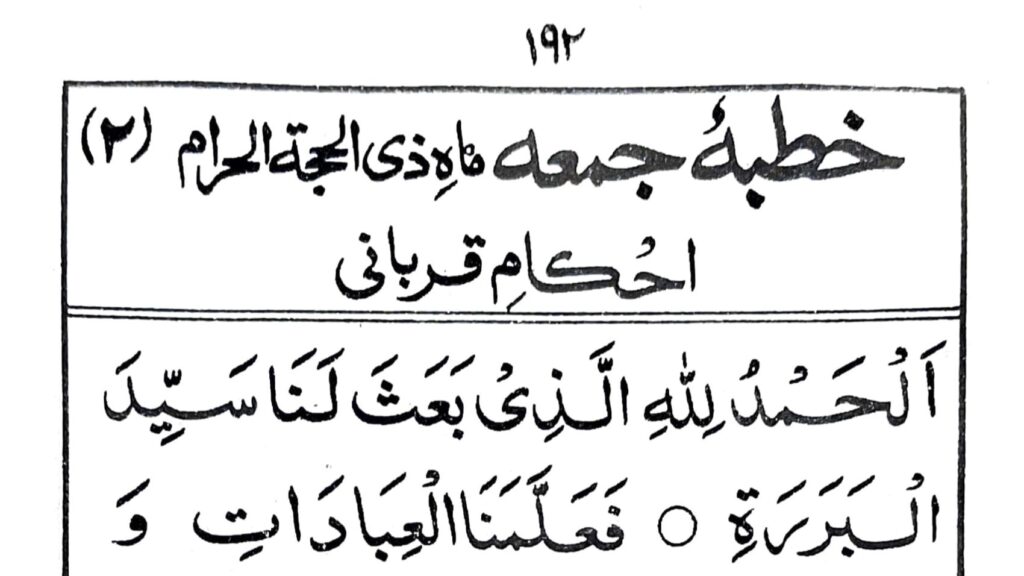 ۱۹۲
خطبۂ جمعہ ماہِ ذی الحجۃ الحرام (۲)
احکامِ قربانی
اَلْحَمْدُ لِلّٰهِ الَّذِیْ بَعَثَ لَنَا سَیِّدَ
الْبَرَرَةِ ○ فَعَلَّمَنَا الْعِبَادَاتِ وَ